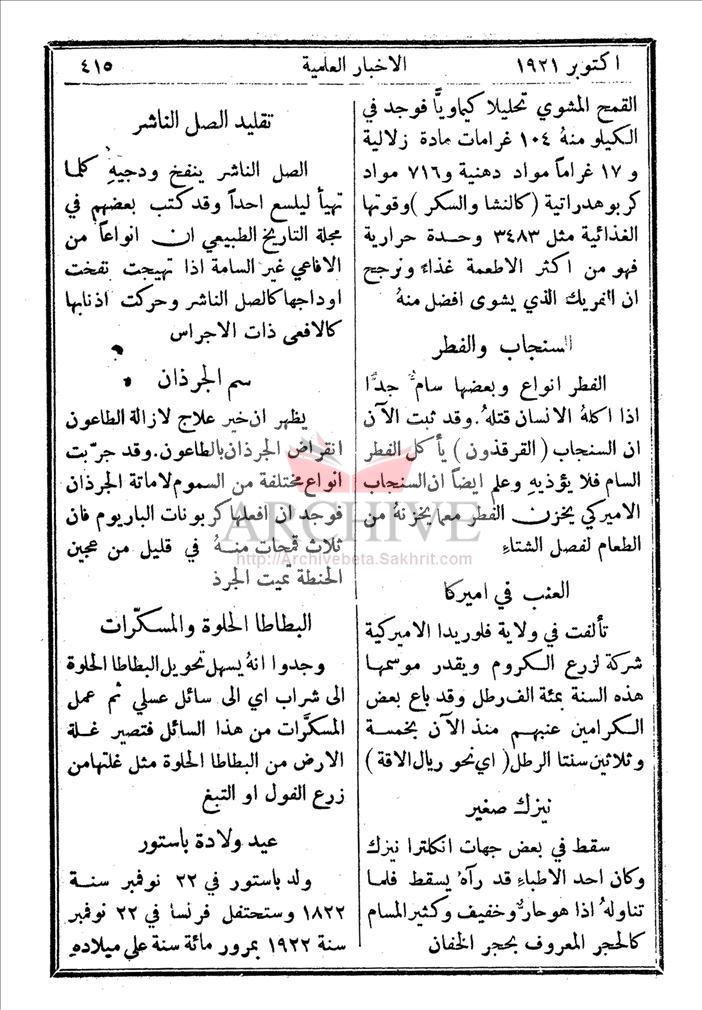 اكتوبر ١٩٢١
الاخبار العلمية
٤١٥
القمح المشوي تحليلا كيماويًّا فوجد في
الكيلو منهُ ١٠٤ غرامات مادة زلالية
و ١٧ غراماً مواد دهنية و٧١٦ مواد
كربوهدراتية (كالنشا والسكر) وقوتها
الغذائية مثل ٣٤٨٣ وحدة حرارية
فهو من اكثر الاطعمة غذاءً ونرجح
ان الفريك الذي يشوى افضل منهُ
السنجاب والفطر
الفطر انواع وبعضها سامٌّ جدًّا
اذا اكلهُ الانسان قتلهُ. وقد ثبت الآن
ان السنجاب (القرقذون) يأكل الفطر
السام فلا يؤذيهِ وعلم ايضاً ان السنجاب
الاميركي يخزن الفطر مما يخزنهُ من
الطعام لفصل الشتاءِ
العنب في اميركا
تألفت في ولاية فلوريدا الاميركية
شركة لزرع الكروم ويقدر موسمها
هذه السنة بمئة الف رطل وقد باع بعض
الكرامين عنبهم منذ الآن بخمسة
وثلاثين سنتا الرطل (اي نحو ريال الاقة)
نيزك صغير
سقط في بعض جهات انكلترا نيزك
وكان احد الاطباءِ قد رآهُ يسقط فلما
تناولهُ اذا هو حارٌّ وخفيف وكثير المسام
كالحجر المعروف بحجر الخفان
تقليد الصل الناشر
الصل الناشر ينفخ ودجيهِ كلما
تهيأ ليلسع احداً وقد كتب بعضهم في
مجلة التاريخ الطبيعي ان انواعاً من
الافاعي غير السامة اذا تهيجت نفخت
اوداجها كالصل الناشر وحركت اذنابها
كالافعى ذات الاجراس
سم الجرذان
يظهر ان خير علاج لازالة الطاعون
انقراض الجرذان بالطاعون. وقد جرّبت
انواع مختلفة من السموم لاماتة الجرذان
فوجد ان افعلها كربونات الباريوم فان
ثلاث قمحات منهُ في قليل من عجين
الحنطة تميت الجرذ
البطاطا الحلوة والمسكرات
وجدوا انهُ يسهل تحويل البطاطا الحلوة
الى شراب اي الى سائل عسلي ثم عمل
المسكّرات من هذا السائل فتصير غلة
الارض من البطاطا الحلوة مثل غلتها من
زرع الفول او التبغ
عيد ولادة باستور
ولد باستور في ٢٢ نوفمبر سنة
١٨٢٢ وستحتفل فرنسا في ٢٢ نوفمبر
سنة ١٩٢٢ بمرور مائة سنة على ميلادهِ
ARCHIVE
http://Archivebeta.Sakhrit.com